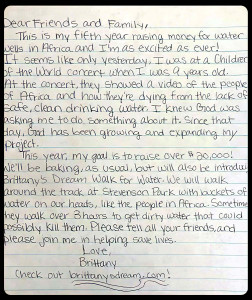 Dear Friends and Family,
This is my fifth year raising money for water
wells in Africa and I'm as excited as ever!
It seems like only yesterday, I was at a Children
of the World concert when I was 9 years old.
At the concert, they showed a video of the people
of Africa and how they're dying from the lack of
safe, clean drinking water. I knew God was
asking me to do something about it. Since that
day, God has been growing and expanding my
project.
This year, my goal is to raise over $30,000!
We'll be baking, as usual, but will also be introducing
Brittany's Dream Walk for Water. We will walk
around the track at Stevenson Park with buckets
of water on our heads, like the people in Africa. Sometimes
they walk over 3 hours to get dirty water that could
possibly kill them. Please tell all your friends, and
please join me in helping save lives.
Love,
Brittany
Check out brittanysdream.com!